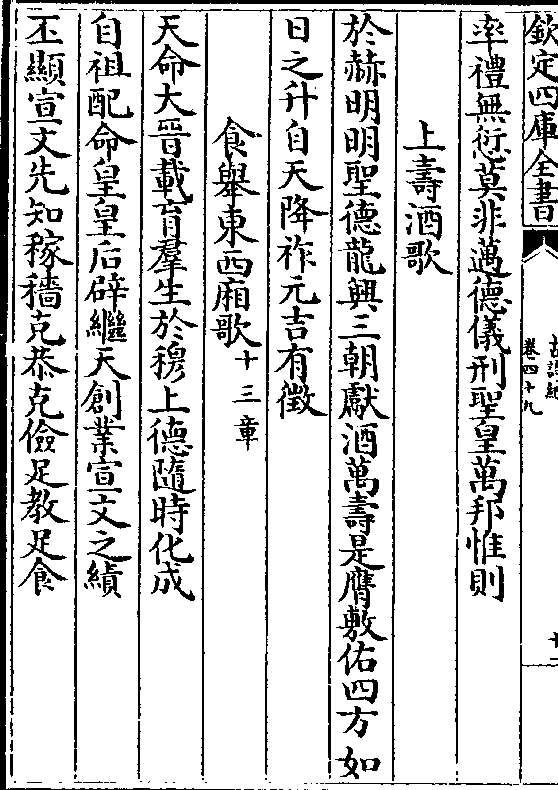 欽定四庫全書
卷四十九
率禮無愆莫非邁德儀刑聖皇萬邦惟則
上壽酒歌
於赫明明聖德龍興三朝獻酒萬壽是膺敷佑四方如
日之升自天降祚元吉有徵
食舉東西廂歌十三章
天命大晉載育羣生於穆上德隨時化成
自祖配命皇皇后辟繼天創業宣文之績
丕顯宣文先知稼穡克恭克儉足教足食